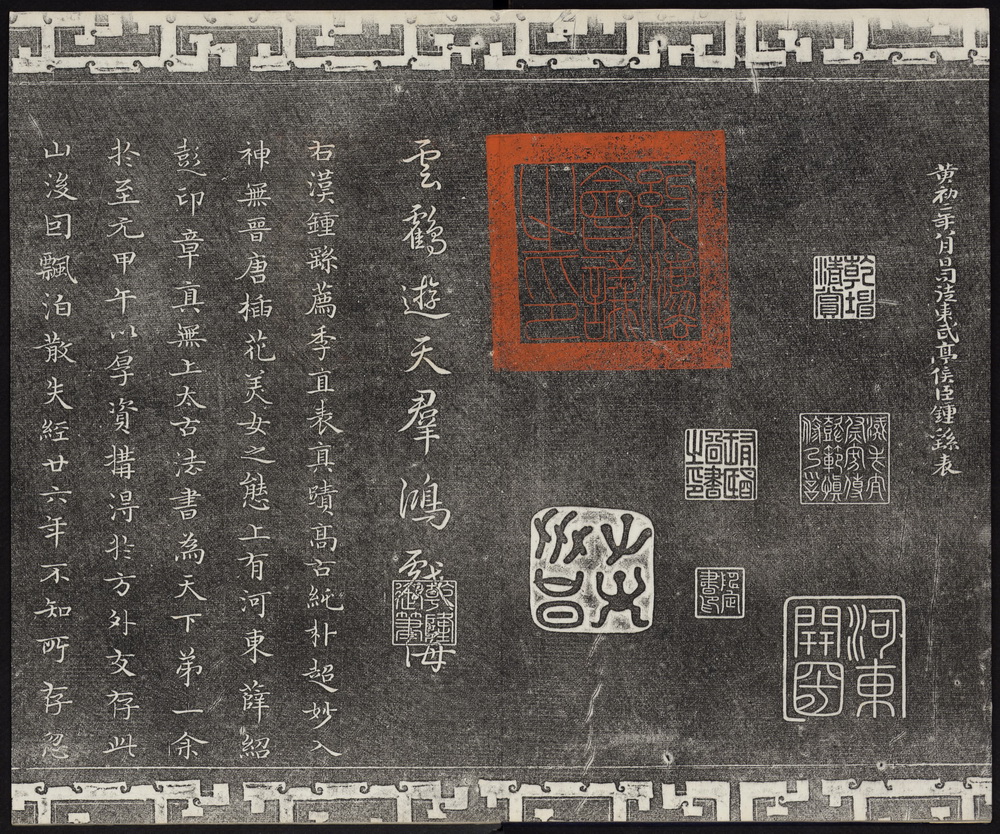 黄初二年八月日司徒東武亭侯臣鍾繇表
河東
開國
雲鶴遊天羣鴻戲海
乾隆
御筆
右漢鍾繇薦季直表真蹟高古純朴超妙入
神無晋唐插花美女之態上有河東薛紹
彭印章真無上太古法書為天下第一余
於至元甲午以厚資購得於方外友存此
山後因飄泊散失經廿六年不知所存忽